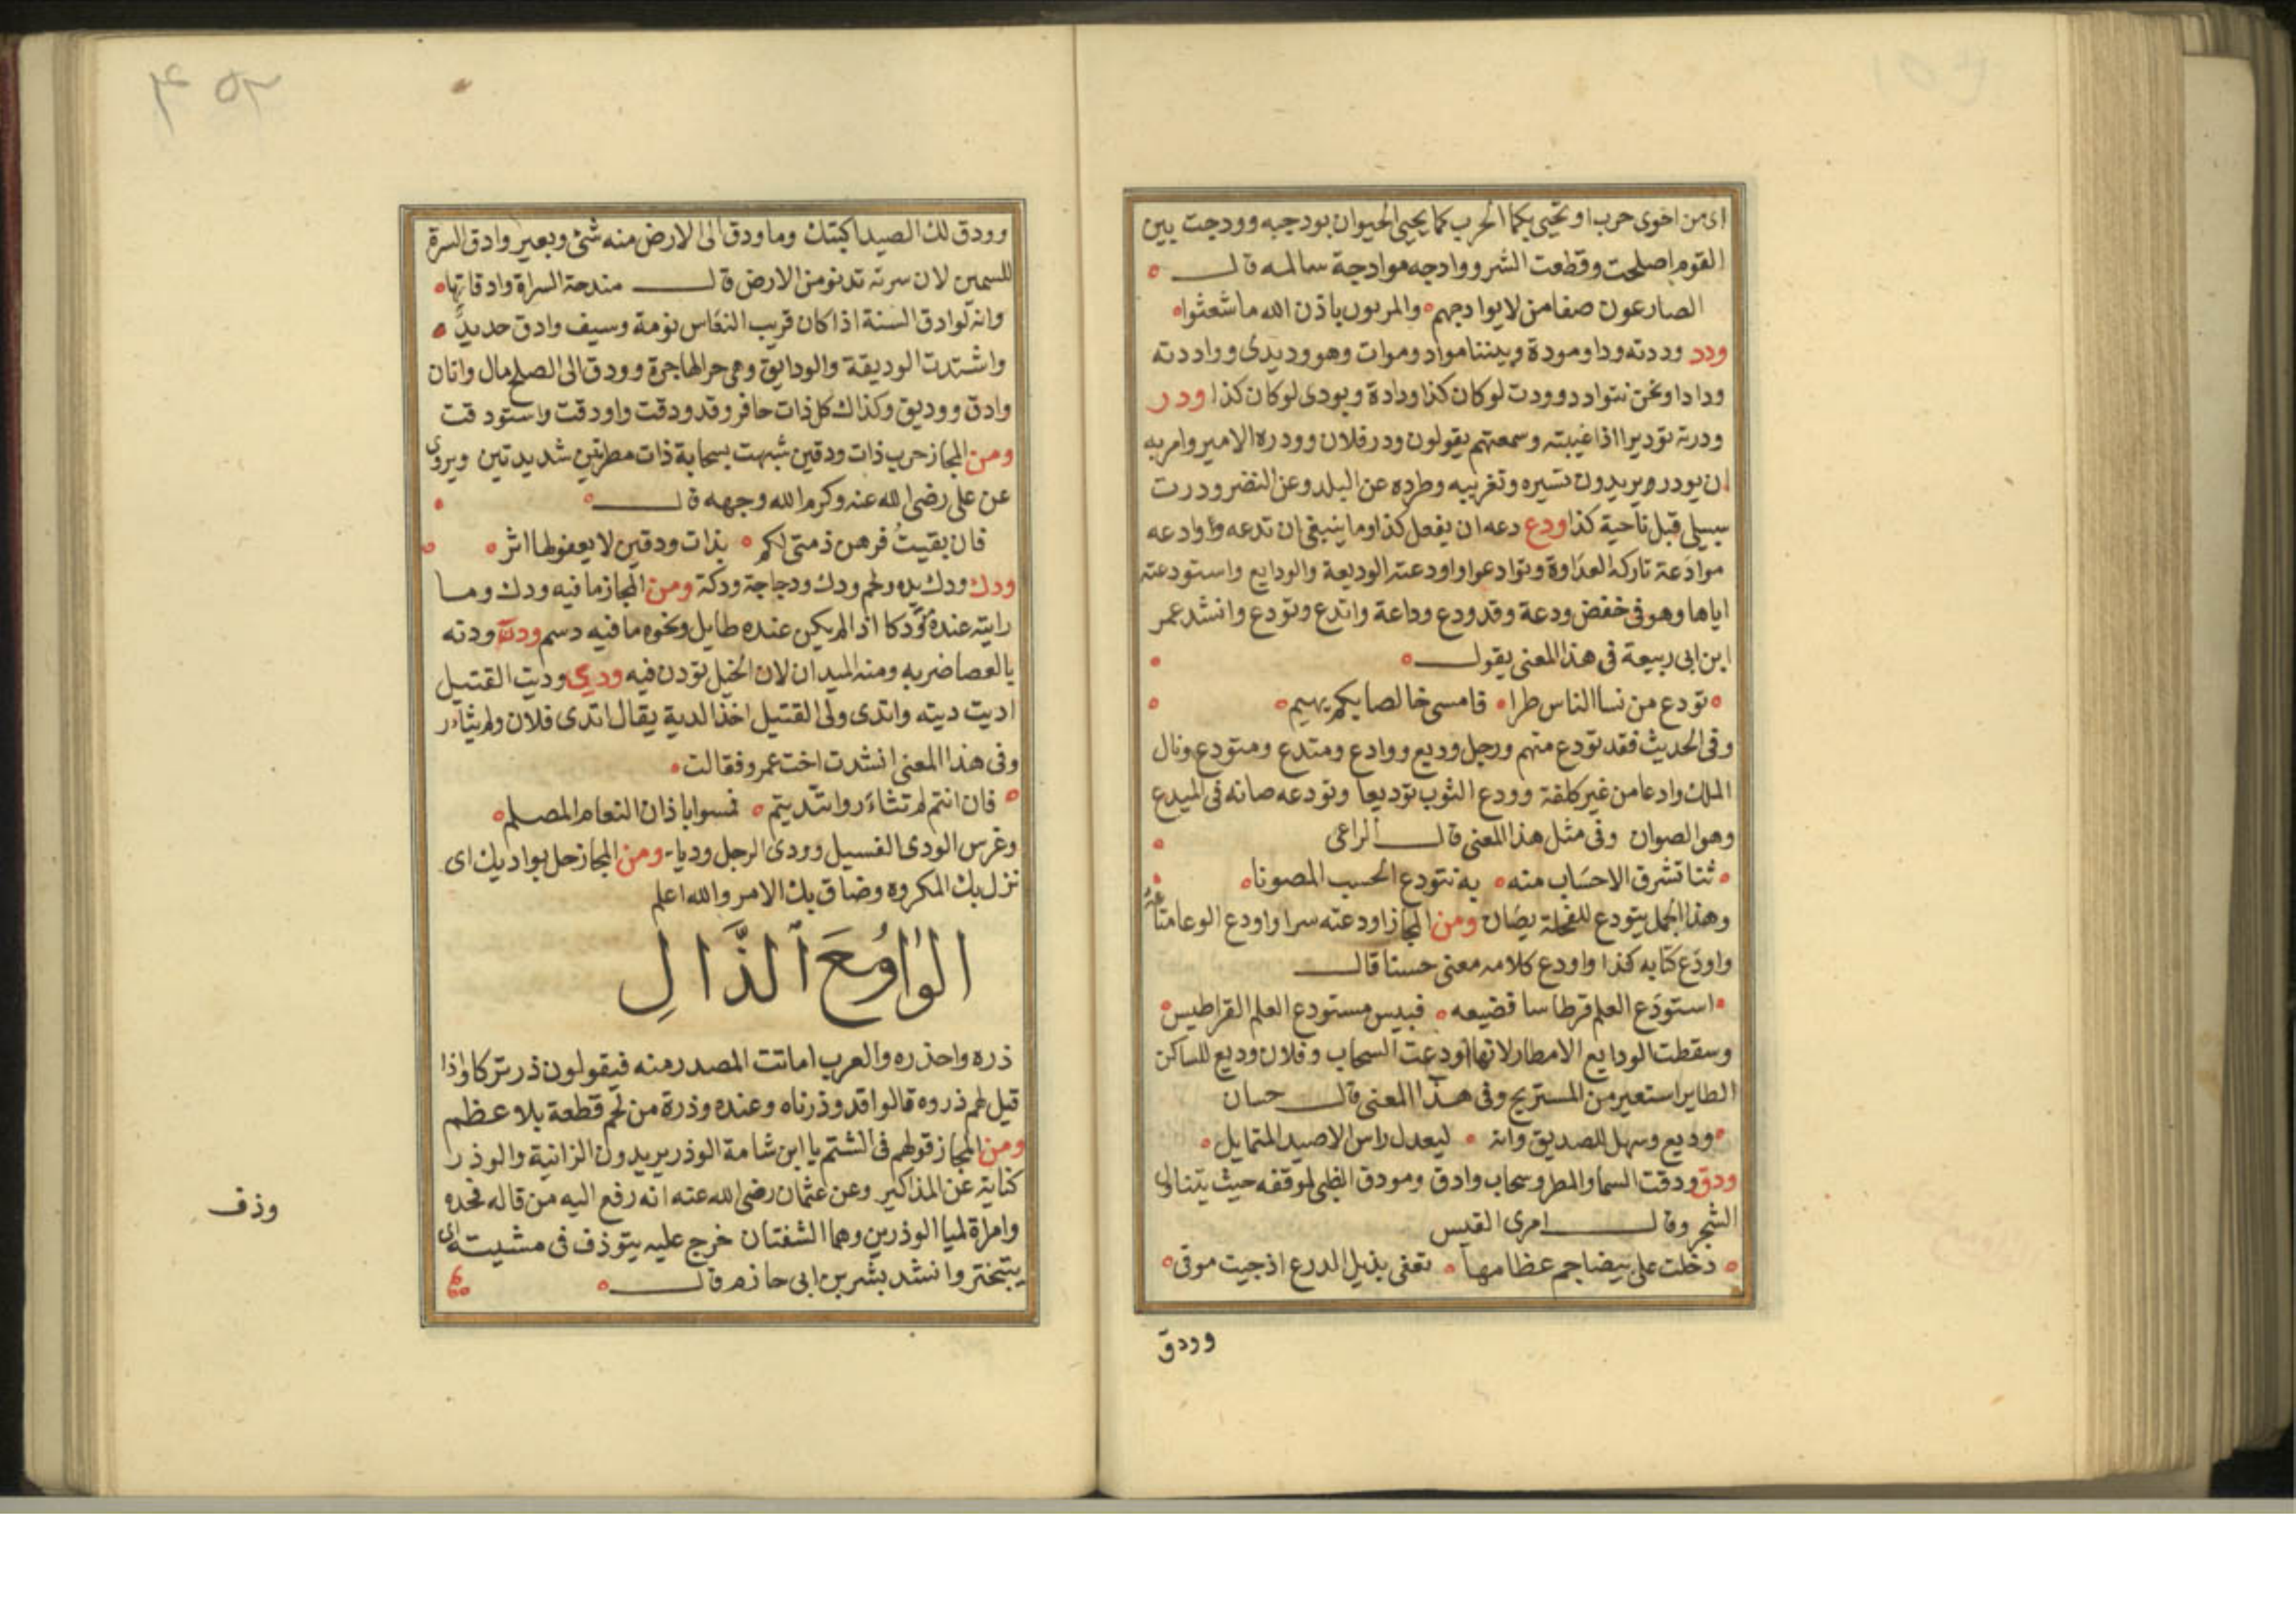 اى من اخوى حرب او يحيى بكما الحرب كما يحيى الحيوان بودجيه وودجت بين
القوم اصلحت وقطعت الشر ووادجه موادجة سالمه قال
الصارعون صفا من لا يوادجهم والمربون باذن الله ما شعثوا
ودد وددته ودا ومودة وبيننا مواد ومواث وهو وديدى ووادد ته
ودادا ونحن نتوادد وودت لو كان كذا ودادة وبودى لو كان كذا ودر
ودرته توديرا اذا غيبته وسمعتهم يقولون ودر فلان وودره الامير وامر به
ان يودر ويريدون تسيره وتغريبه وطرده عن البلد وعن النضر ودرت
سبيلى قبل ناحية كذا ودع دعه ان يفعل كذا وما ينبغى ان تدعه ووادعه
موادعة تاركه العداوة وتوادعوا واودعته الوديعة والودايع واستودعته
اياها وهو فى خفض ودعة وقد ودع وداعة واتدع وتودع وانشد عمر
ابن ابى ربيعة فى هذا المعنى يقول
تودع من نسا الناس طرا فامسى خالصا بكم يهيم
وفى الحديث فقد تودع منهم ورجل وديع ووادع ومتدع ومتودع ونال
الملك وادعا من غير كلفة وودع الثوب توديعا وتودعه صانه فى الميدع
وهو الصوان وفى مثل هذا المعنى قال الراعى
ثنا تشرق الاحساب منه به نتودع الحسب المصونا
وهذا الجمل يتودع للفحلة يصان ومن المجاز اودعته سرا واودع الوعا متاعه
واودع كتابه كذا واودع كلامه معنى حسنا قال
استودع العلم قرطاسا فضيعه فبيس مستودع العلم القراطيس
وسقطت الودايع الامطار لانها اودعت السحاب وفلان وديع للساكن
الطاير استعير من المستريح وفى هذا المعنى قال حسان
وديع وسهل للصديق وانه ليعدل راس الاصيد المتمايل
ودق ودقت السما والمطر وسحاب وادق ومودق الظبى لموقفه حيث يتناول
الشجر وقال امرى القيس
دخلت على بيضا جم عظامها تعفى بذيل الدرع اذ جيت موقى
وودق
٤٥٢
وودق لك الصيد اكبتك وما ودق الى الارض منه شئ وبعير وادق السرة
للسمين لان سرته تدنو من الارض قال مندحة السراة وادقاتها
وانه لوادق السنة اذا كان قريب النعاس نومة وسيف وادق حديد
واشتدت الوديقة والودايق وهى حر الهاجرة وودق الى الصلح مال واتان
وادق ووديق وكذاك كل ذات حافر وقد ودقت واودقت واستودقت
ومن المجاز حرب ذات ودقين شبهت بسحابة ذات مطرتين شديدتين ويروى
عن على رضى الله عنه وكرم الله وجهه قال
فان بقيت فرهن ذمتى لكم بذات ودقين لا يعفو لها اثر
ودك ودك يده ولحم ودك ودجاجة ودكة ومن المجاز ما فيه ودك وما
رايته عنده تودكا اذا لم يكن عنده طايل ونحوه ما فيه دسم ودن ودنه
بالعصا ضربه ومنه الميدان لان الخيل تودن فيه ودي وديت القتيل
اديت ديته واتدى ولى القتيل اخذ الدية يقال اتدى فلان ولم يثاءر
وفى هذا المعنى انشدت اخت عمرو فقالت
فان انتم لم تثاءروا واتديتم فمسوا باذان النعام المصلم
وغرس الودى الفسيل وودى الرجل وديا ومن المجاز حل بواديك اى
نزل بك المكروه وضاق بك الامر والله اعلم
الواو مع الذال
ذره واحذره والعرب اماتت المصدر منه فيقولون ذر تركا واذا
قيل لهم ذروه قالوا قد وذرناه وعنده وذرة من لحم قطعة بلا عظم
ومن المجاز قولهم فى الشتم يا ابن شامة الوذر يريدون الزانية والوذر
كناية عن المذاكير وعن عثمان رضى الله عنه انه رفع اليه من قاله فحده
وامراة لميا الوذرين وهما الشفتان خرج عليه يتوذف فى مشيته اى
يتبختر وانشد بشر بن ابى حازم قال
وذف